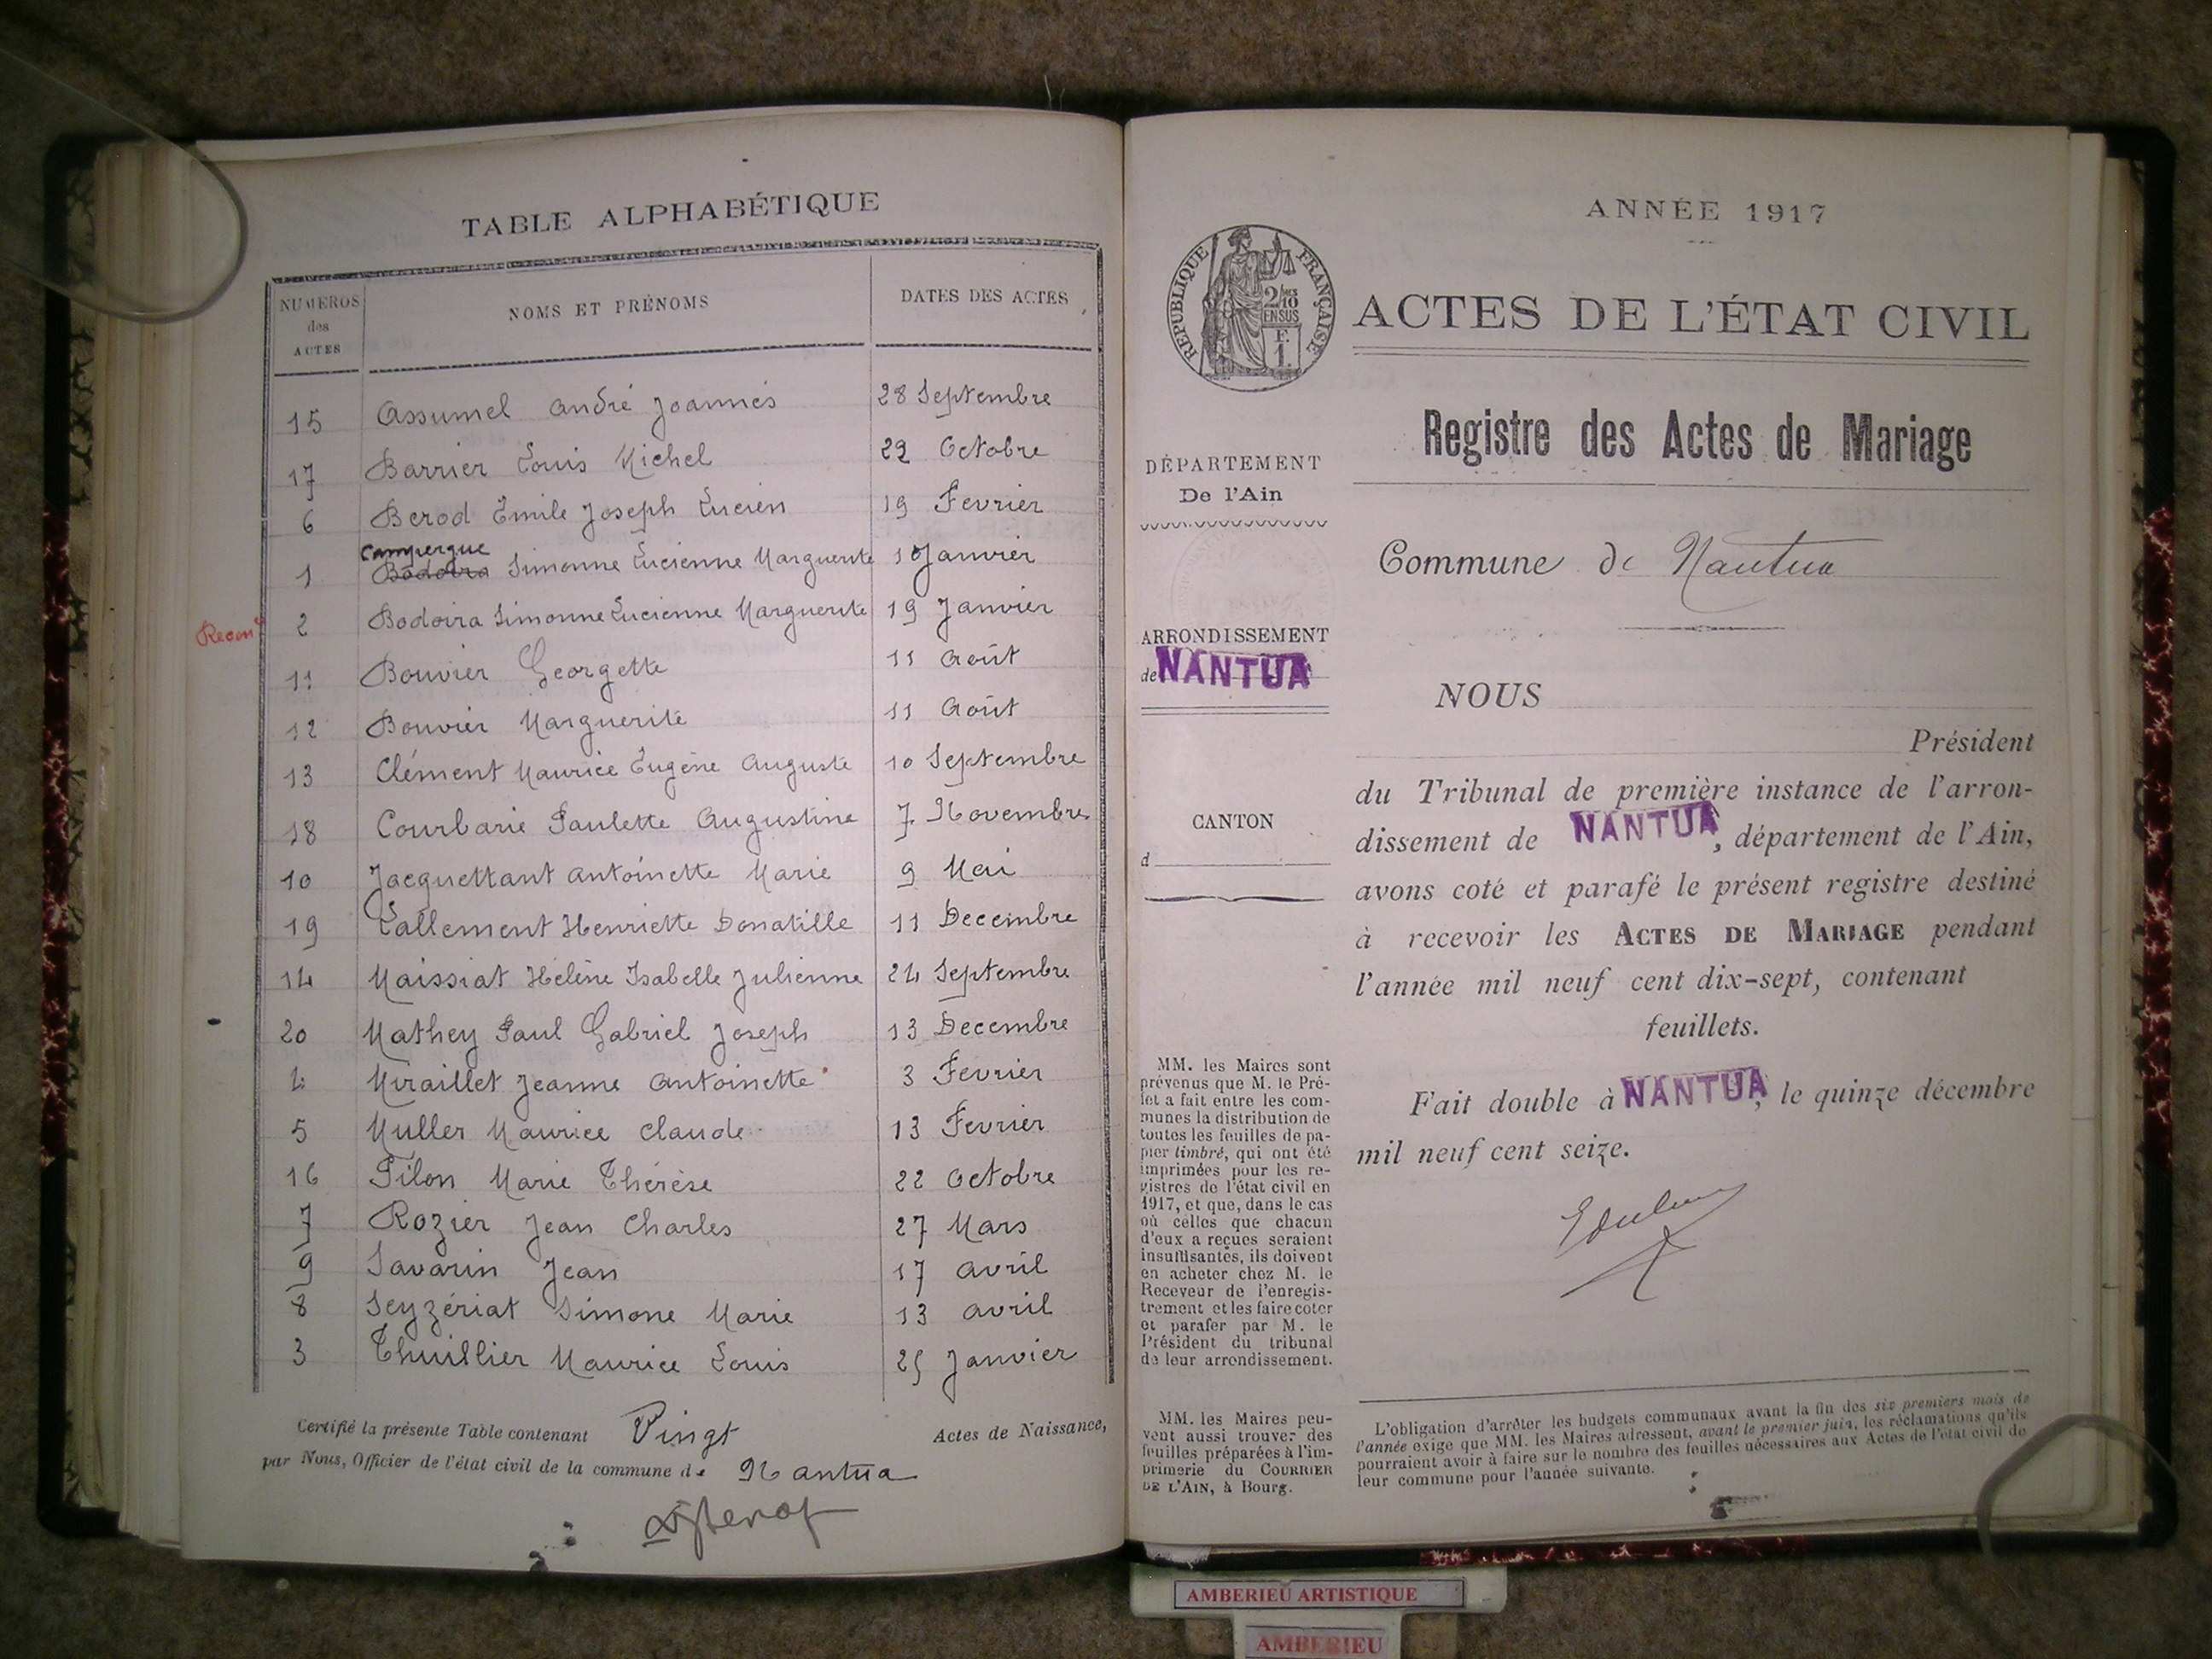 TABLE ALPHABÉTIQUE
NUMEROS des ACTES
NOMS ET PRÉNOMS
DATES DES ACTES
15 Assumel André Joannès 28 Septembre
17 Barrier Louis Michel 29 Octobre
6 Berod Emile Joseph Lucien 19 Fevrier
Campergue
1 Bodoira Simonne Lucienne Marguerite 10 Janvier
Recon 2 Bodoira Simonne Lucienne Marguerite 19 Janvier
11 Bouvier Georgette 11 Août
12 Bouvier Marguerite 11 Août
13 Clément Maurice Eugène Auguste 10 Septembre
18 Courbarie Paulette Augustine 7 Novembre
10 Jacquettant Antoinette Marie 9 Mai
19 Lallement Henriette Donatille 11 Decembre
14 Maissiat Hélène Isabelle Julienne 24 Septembre
20 Mathey Paul Gabriel Joseph 13 Decembre
4 Miraillet Jeanne Antoinette 3 Fevrier
5 Muller Maurice Claude 13 Fevrier
16 Pilon Marie Thérèse 22 Octobre
7 Rozier Jean Charles 27 Mars
9 Savarin Jean 17 avril
8 Seyzériat Simone Marie 13 avril
3 Thuillier Maurice Louis 25 Janvier
Certifié la présente Table contenant Vingt Actes de Naissance,
par Nous, Officier de l'état civil de la commune de Nantua
ANNÉE 1917
RÉPUBLIQUE FRANÇAISE
2/10 EN SUS
F. 1.
ACTES DE L'ÉTAT CIVIL
Registre des Actes de Mariage
DÉPARTEMENT
De l'Ain
Commune de Nantua
ARRONDISSEMENT
de NANTUA
CANTON
d
NOUS
Président
du Tribunal de première instance de l'arron-
dissement de NANTUA, département de l'Ain,
avons coté et parafé le présent registre destiné
à recevoir les ACTES DE MARIAGE pendant
l'année mil neuf cent dix-sept, contenant
feuillets.
Fait double à NANTUA, le quinze décembre
mil neuf cent seize.
MM. les Maires sont
prévenus que M. le Pré-
fet a fait entre les com-
munes la distribution de
toutes les feuilles de pa-
pier timbré, qui ont été
imprimées pour les re-
gistres de l'état civil en
1917, et que, dans le cas
où celles que chacun
d'eux a reçues seraient
insuffisantes, ils doivent
en acheter chez M. le
Receveur de l'enregis-
trement et les faire coter
et parafer par M. le
Président du tribunal
de leur arrondissement.
MM. les Maires peu-
vent aussi trouver des
feuilles préparées à l'im-
primerie du COURRIER
DE L'AIN, à Bourg.
L'obligation d'arrêter les budgets communaux avant la fin des six premiers mois de
l'année exige que MM. les Maires adressent, avant le premier juin, les réclamations qu'ils
pourraient avoir à faire sur le nombre des feuilles nécessaires aux Actes de l'état civil de
leur commune pour l'année suivante.
AMBERIEU ARTISTIQUE
AMBERIEU